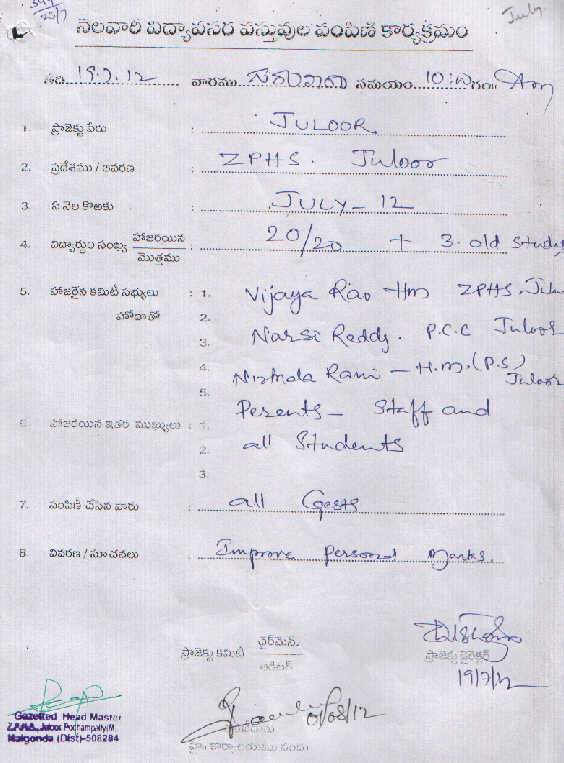 July
నెలవారి విద్యావసర వస్తువుల పంపిణి కార్యక్రమం
తేది 19.7.12 వారము సమయం 10:
1. ప్రాజెక్టు పేరు : JULOOR
2. ప్రదేశము / వివరణ : ZPHS. Juloor
3. ఏ నెల కొఱకు : JULY - 12
4. విద్యార్థుల సంఖ్య హాజరయిన : 20/20 + 3. old Study
మొత్తము
5. హాజరైన కమిటీ సభ్యులు : 1. Vijaya Rao Hm ZPHS.
హోదాతో 2.
3. Narsi Reddy. P.C.C Juloor
4. Nirmala Rani - H.M.(P.S) Juloor
5.
6. హాజరయిన ఇతర ముఖ్యులు : 1. Perents - Staff and
2. all Students
3.
7. పంపిణి చేసిన వారు : all Gests
8. వివరణ / సూచనలు : Improve Personal Marks.
ప్రాజెక్టు కమిటీ ఛైర్మెన్.
ప్రాజెక్టు డైరెక్టర్
19/7/12
Gazetted Head Master
Z.P.H.S., Juloor, Pochampally(M)
Nalgonda (Dist)-508284
01/08/12